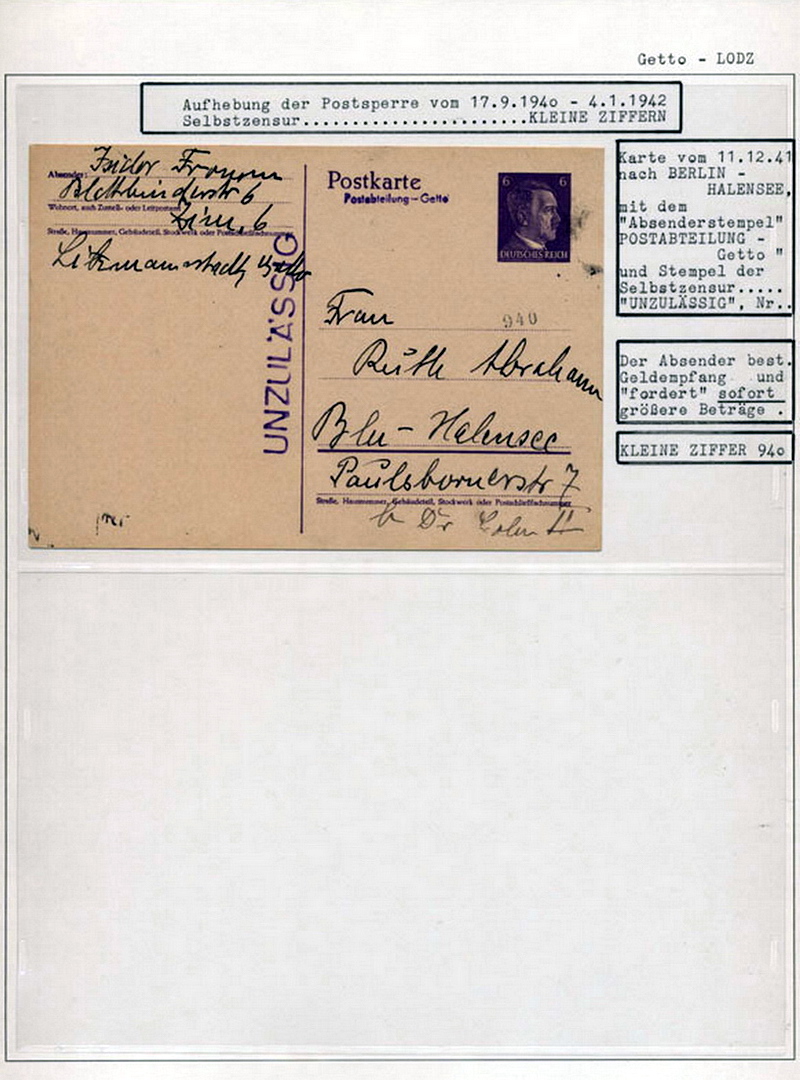 Getto - LODZ
Aufhebung der Postsperre vom 17.9.194o - 4.1.1942
Selbstzensur.......................KLEINE ZIFFERN
Absender: Isidor
6
Wohnort, auch Zustell- oder Leitpostamt
Zim. 6
Straße, Hausnummer, Gebäudeteil, Stockwerk oder Postschließfachnummer
Litzmannstadt, Getto
UNZULÄSSIG
Postkarte
Postabteilung - Getto
6 6
DEUTSCHES REICH
Frau
940
Ruth Abraham
Bln - Halensee
Paulsbornerstr 7
Straße, Hausnummer, Gebäudeteil, Stockwerk oder Postschließfachnummer
b Dr Cohn II
Karte vom 11.12.41
nach BERLIN -
HALENSEE,
mit dem
"Absenderstempel"
POSTABTEILUNG -
Getto "
und Stempel der
Selbstzensur.....
"UNZULÄSSIG", Nr..
Der Absender best.
Geldempfang und
"fordert" sofort
größere Beträge .
KLEINE ZIFFER 94o